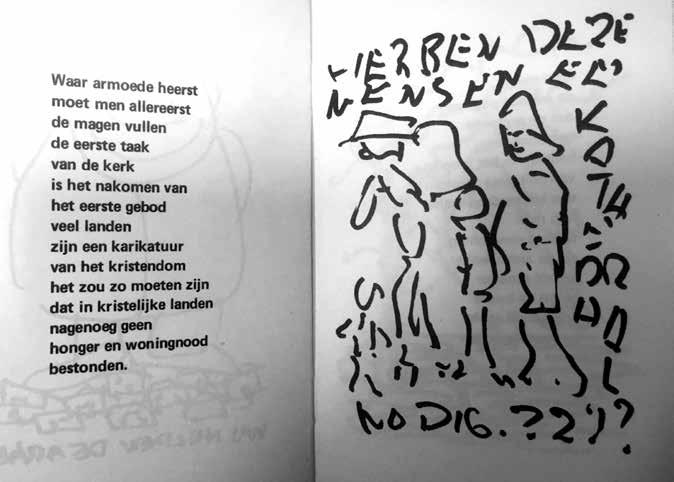 Waar armoede heerst
moet men allereerst
de magen vullen
de eerste taak
van de kerk
is het nakomen van
het eerste gebod
veel landen
zijn een karikatuur
van het kristendom
het zou zo moeten zijn
dat in kristelijke landen
nagenoeg geen
honger en woningnood
bestonden.
HEBBEN DEZE
MENSEN EEN
KATHEDRAAL
NODIG.???